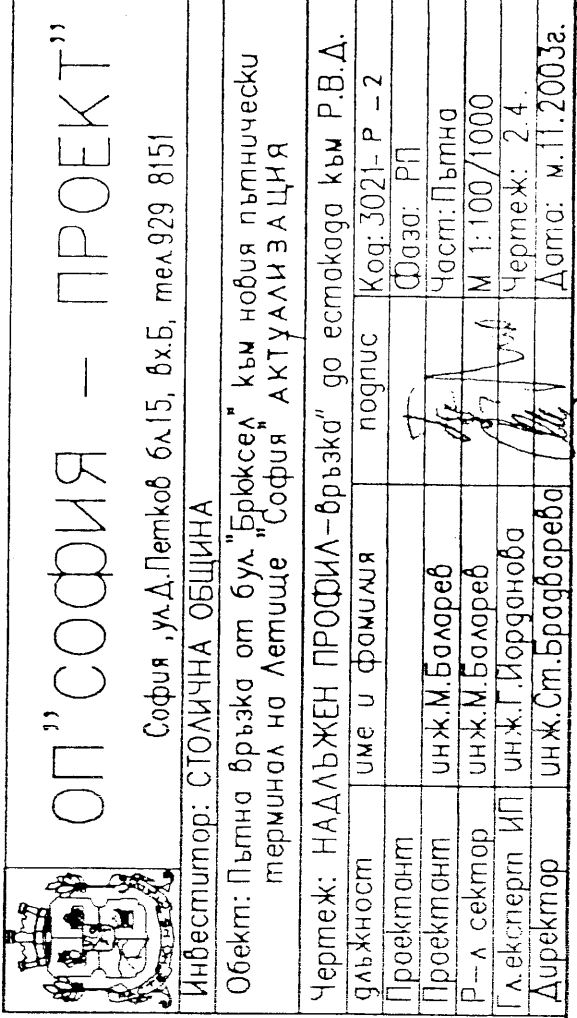 ОП "СОФИЯ – ПРОЕКТ"
София ,ул.Д.Петков бл.15, вх.Б, тел929 8151
Инвеститор: СТОЛИЧНА ОБЩИНА
Обект: Пътна връзка от бул."Брюксел" към новия пътнически
терминал на Летище "София" АКТУАЛИЗАЦИЯ
Чертеж: НАДЛЪЖЕН ПРОФИЛ-връзка" до естакада към Р.В.Д.
длъжност име и фамилия подпис Код: 3021- Р - 2
Проектант Фаза: РП
Проектант инж.М.Баларев Част: Пътна
Р-л сектор инж.М.Баларев М 1:100/1000
Гл.експерт ИП инж.Г.Йорданова Чертеж: 2.4.
Директор инж.Ст.Брадварева Дата: м.11.2003г.